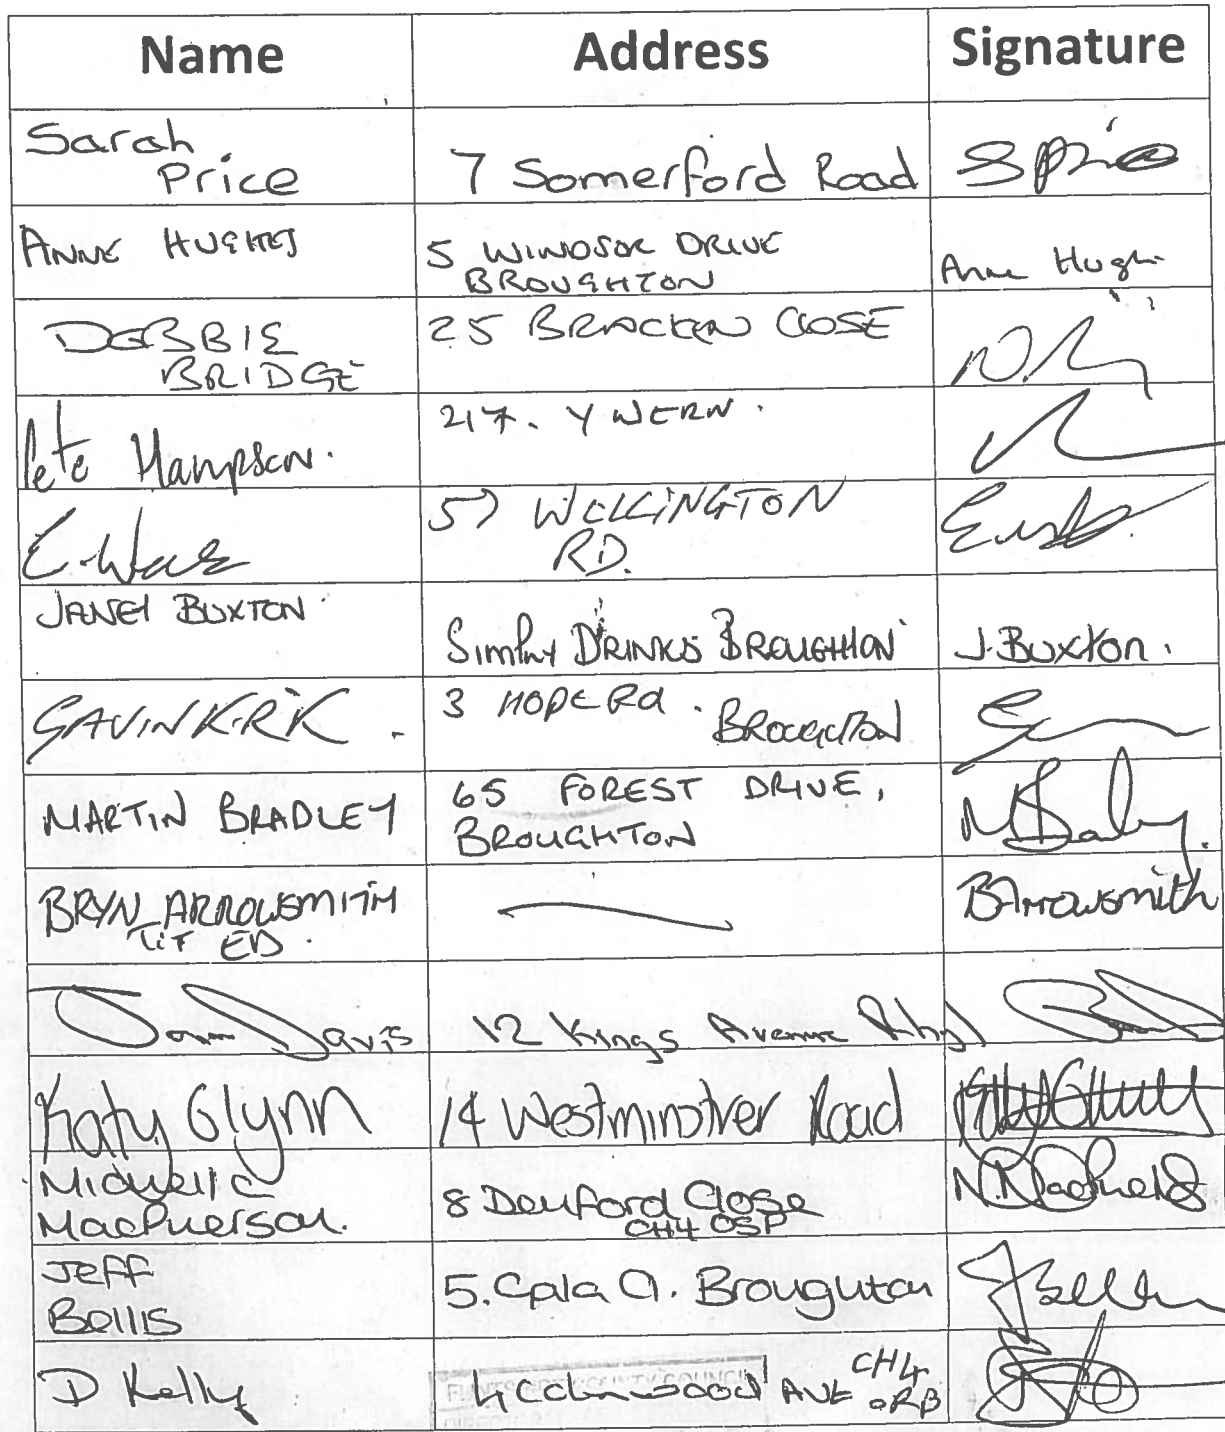 Name Address Signature
Sarah
Price 7 Somerford Road S Price
ANNE HUGHES 5 WINDSOR DRIVE
BROUGHTON Anne Hughes
DEBBIE
BRIDGE 25 BRACKEN CLOSE
Pete Hampson. 217. Y WERN.
57 WELLINGTON
RD.
JANET BUXTON Simply DRINKS BROUGHTON J. Buxton.
GAVIN KIRK. 3 HOPE Rd. BROUGHTON
MARTIN BRADLEY 65 FOREST DRIVE,
BROUGHTON
BRYN ARROWSMITH BArrowsmith
Davis 12 Kings Avenue Rhyl
Katy Glynn 14 Westminstver Road
Michelle
MacPherson. 8 Denford Close
CH4 0SP
Jeff
Bellis 5. Cala Cl. Broughton JBellis
D Kelly AVE CH4
0RB
FLINTSHIRE COUNTY COUNCIL